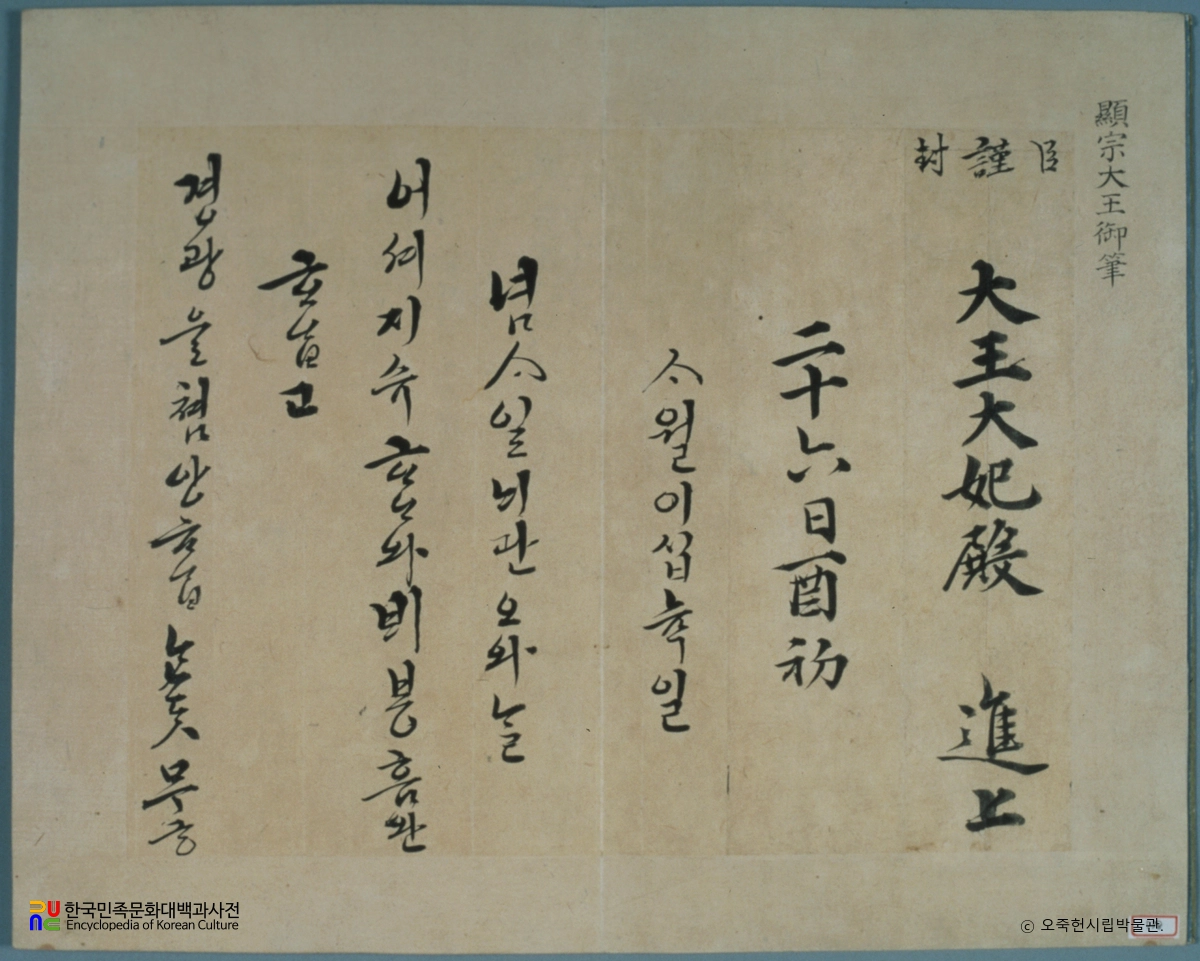 顯宗大王御筆
臣謹封
大王大妃殿 進上
二十六日酉初
ᄉᆞ월이십뉵일
념ᄉᆞ일ᄂᆡ관오와ᄂᆞᆯ
어셔지슈ᄒᆞᄋᆞ와비봉흠완
ᄒᆞᄋᆞᆸ고
경광을쳠안ᄒᆞᄋᆞᆸᄂᆞᆫᄃᆞᆺ무궁
한국민족문화대백과사전
Encyclopedia of Korean Culture
ⓒ 오죽헌시립박물관.